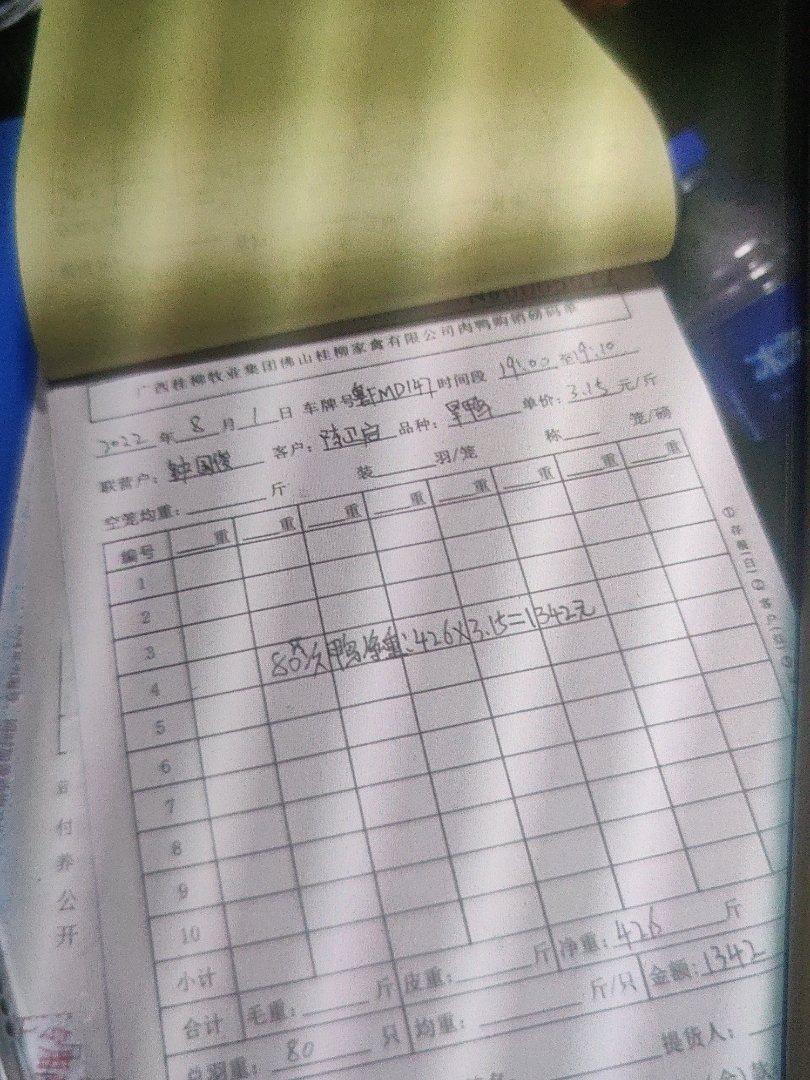 广西桂柳牧业集团佛山桂柳家禽有限公司肉鸭购销磅码单
2022年8月1日 车牌号粤FMD147时间段 19:00至19:10
联营户: 钟国俊 客户: 陈卫启 品种: 旱鸭 单价: 3.15元/斤
空笼均重: 斤 装 羽/笼 称 笼/磅
编号 重 重 重 重 重 重 重 重
1
2
3
80只鸭净重:426×3.15=1342元
4
5
6
7
8
9
10
小计
合计 毛重: 斤 皮重: 斤 净重: 426 斤
总羽重: 80 只 均重: 斤/只 金额: 1342
提货人:
付
养
公
开